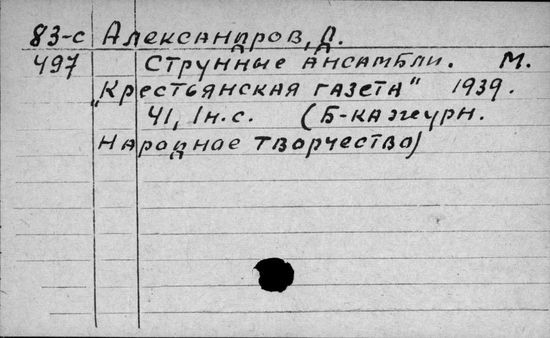 83-с Александров, Д.
497 Струнные ансамбли. М.
„Крестьянская газета" 1939.
41, 1н.с. (Б-ка журн.
Народное творчество)